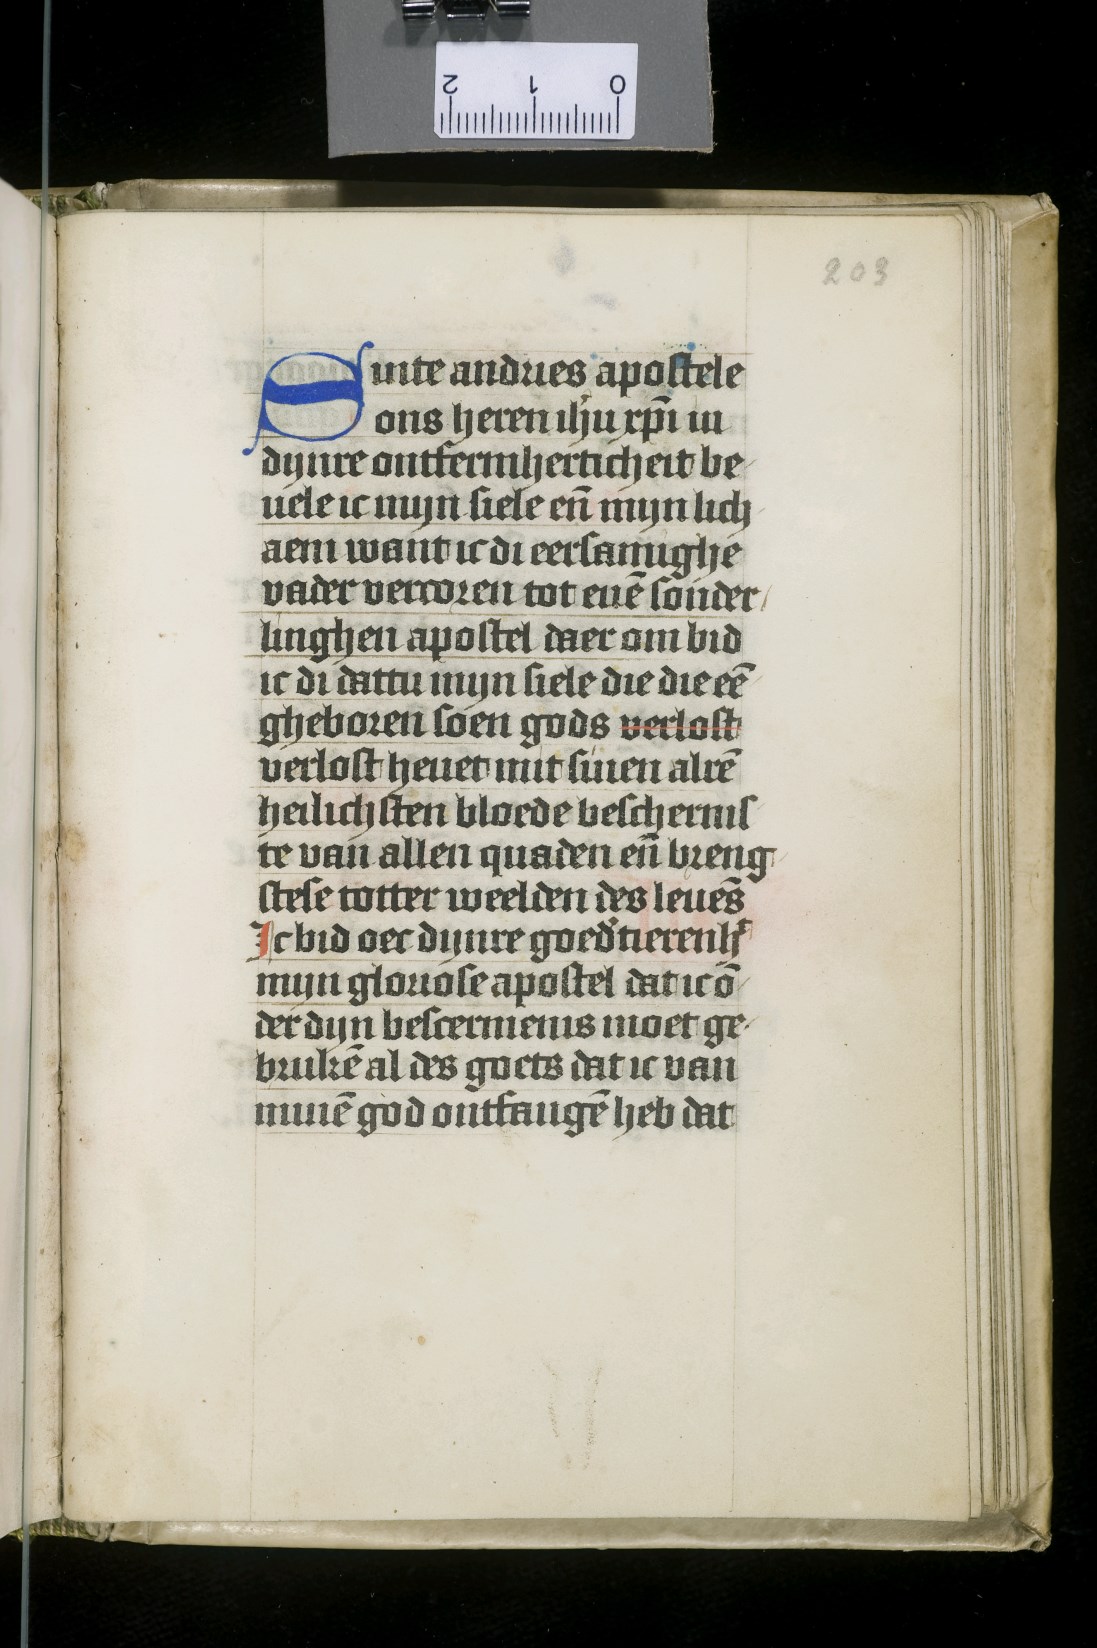 2 1 0
203
Sinte andries apostele
ons heren ihu xp̄i in
dijnre ontfermherticheit be
uele ic mijn siele en̄ mijn lich
aem want ic di eersamighe
vader vercoren tot enē sonder
linghen apostel daer om bid
ic di dattu mijn siele die die eē
gheboren soen gods verlost
verlost heuet mit sinen alrē
heilichsten bloede bescherms
te van allen quaden en̄ breng
stese totter weelden des leuēs
Ic bid oec dijnre goedˀtierenhˀt
mijn gloriose apostel dat ic ō
der dijn beschermenis moet ge
bruikē al des goets dat ic van
minē god ontfangē heb dat